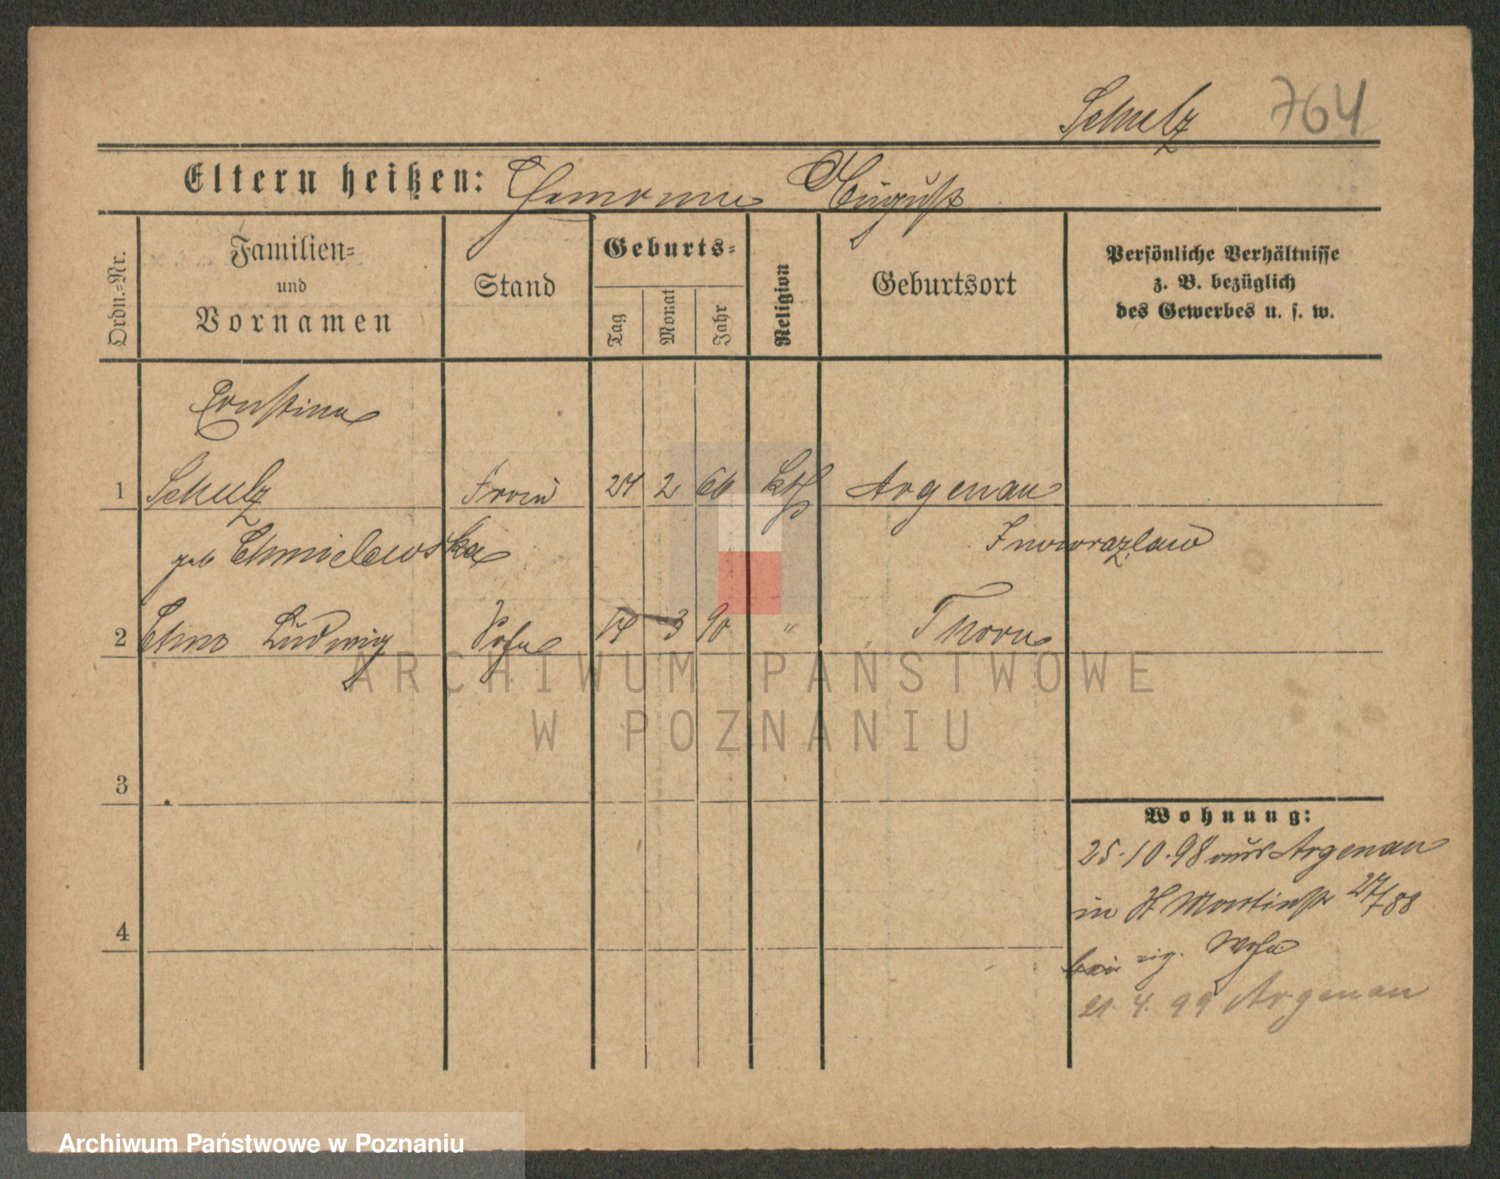 Schulz 764
Eltern heißen: August
Ordn.-Nr.
Familien-
und
Vornamen
Stand
Geburts-
Tag
Monat
Jahr
Religion
Geburtsort
Persönliche Verhältnisse
z. B. bezüglich
des Gewerbes u. s. w.
Ernstine
1 Schulz Frau 24 2 66 kth Argenau
geb Chmielewska Inowrazlaw
2 Ludwig 3 90 " Thorn
3
4
Wohnung:
25.10.98 aus Argenau
in St Martinstr 27/88
bei eig.
21.4.99 Argenau
ARCHIWUM PAŃSTWOWE
W POZNANIU
Archiwum Państwowe w Poznaniu